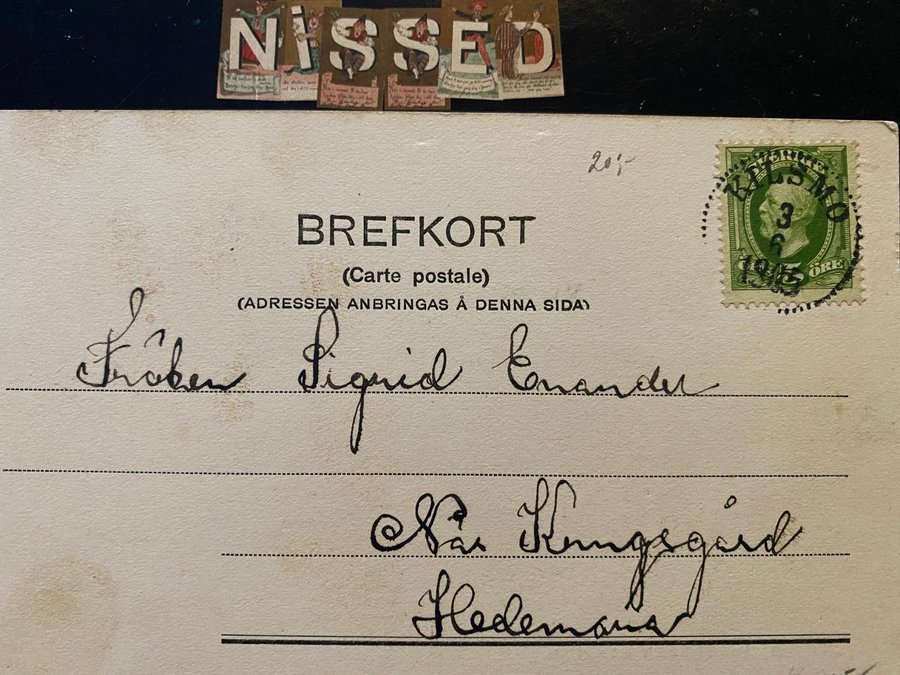 NiSSED
20;-
BREFKORT
(Carte postale)
(ADRESSEN ANBRINGAS Å DENNA SIDA)
SVERIGE
KILSMO
3
6
1905
5 ÖRE
Fröken Sigrid Enander
När Kungsgård
Hedemora